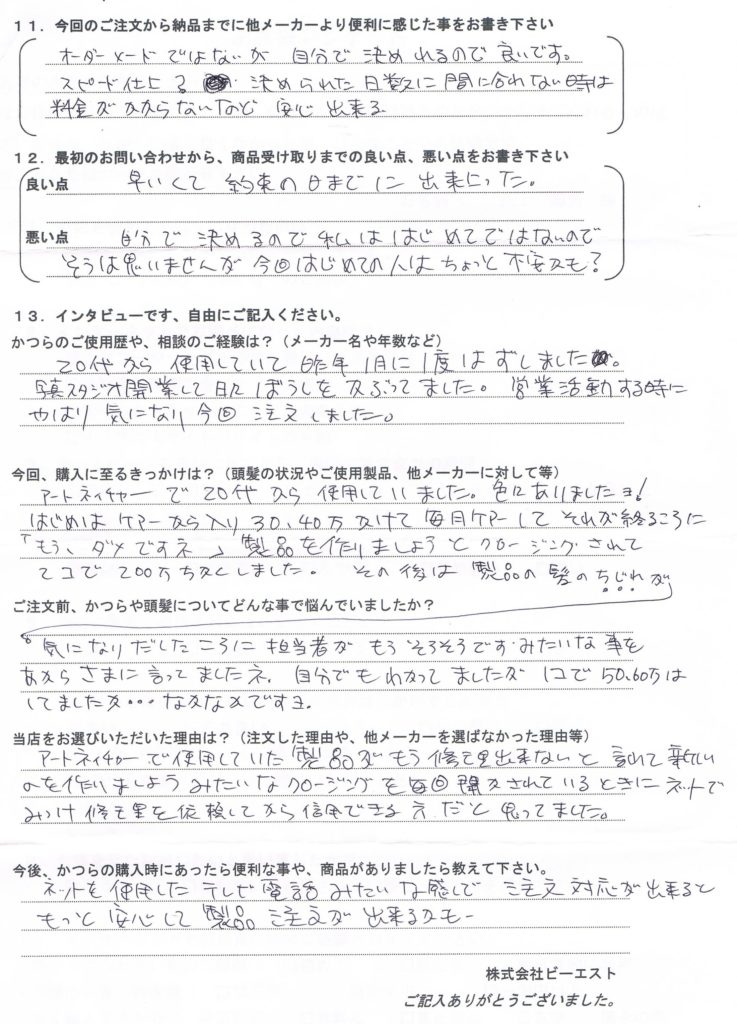 11．今回のご注文から納品までに他メーカーより便利に感じた事をお書き下さい
オーダーメードではないが 自分で決めれるので良いです。
スピード仕上 決められた日数に間に合わない時は
料金がかからないなど 安心出来る
12．最初のお問い合わせから、商品受け取りまでの良い点、悪い点をお書き下さい
良い点 早いくて 約束の日までに 出来上った。
悪い点 自分で決めるので私ははじめてではないので
そうは思いませんが今回はじめての人はちょっと不安かも？
13．インタビューです、自由にご記入ください。
かつらのご使用歴や、相談のご経験は？（メーカー名や年数など）
20代から使用していて昨年1月に1度はずしました。
写真スタジオ開業して日々ぼうしをかぶってました。営業活動する時に
やはり気になり今回注文しました。
今回、購入に至るきっかけは？（頭髪の状況やご使用製品、他メーカーに対して等）
アートネイチャーで20代から使用していました。色々ありましたヨ！
はじめはケアーから入り30、40万かけて毎月ケアーしてそれが終るころに
「もう、ダメですネ」製品を作りましようとクロージングされて
2コで200万ちかくしました。その後は製品の髪のちじれが
ご注文前、かつらや頭髪についてどんな事で悩んでいましたか？
気になりだしたころに担当者がもうそろそろです.みたいな事を
あからさまに言ってましたネ.自分でもわかってましたが1コで50.60万は
してましたか・・・なかなかですヨ.
当店をお選びいただいた理由は？（注文した理由や、他メーカーを選ばなかった理由等）
アートネイチャーで使用していた製品がもう修理出来ないと言われて新しい
のを作りましようみたいなクロージングを毎回聞かされているときにネットで
みつけ修理を依頼してから信用できる だと思ってました。
今後、かつらの購入時にあったら便利な事や、商品がありましたら教えて下さい。
ネットを使用したテレビ電話みたいな感じで注文対応が出来ると
もっと安心して製品注文が出来るかもー
株式会社ビーエスト
ご記入ありがとうございました。